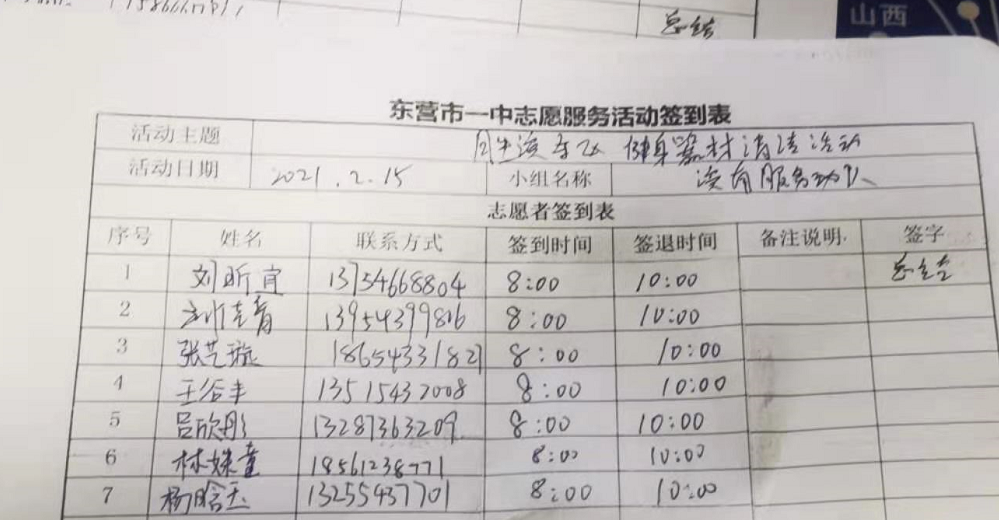 总结
山西
东营市一中志愿服务活动签到表
活动主题 健身器材清洁活动
活动日期 2021.2.15 小组名称 服务动队
志愿者签到表
序号 姓名 联系方式 签到时间 签退时间 备注说明 签字
1 刘昕宜 13754668804 8:00 10:00
2 13954399816 8:00 10:00
3 张艺璇 18654331827 8:00 10:00
4 王谷丰 13515432008 8:00 10:00
5 吕欣彤 13287363209 8:00 10:00
6 林姝童 18561238771 8:00 10:00
7 杨晗玉 13255437701 8:00 10:00